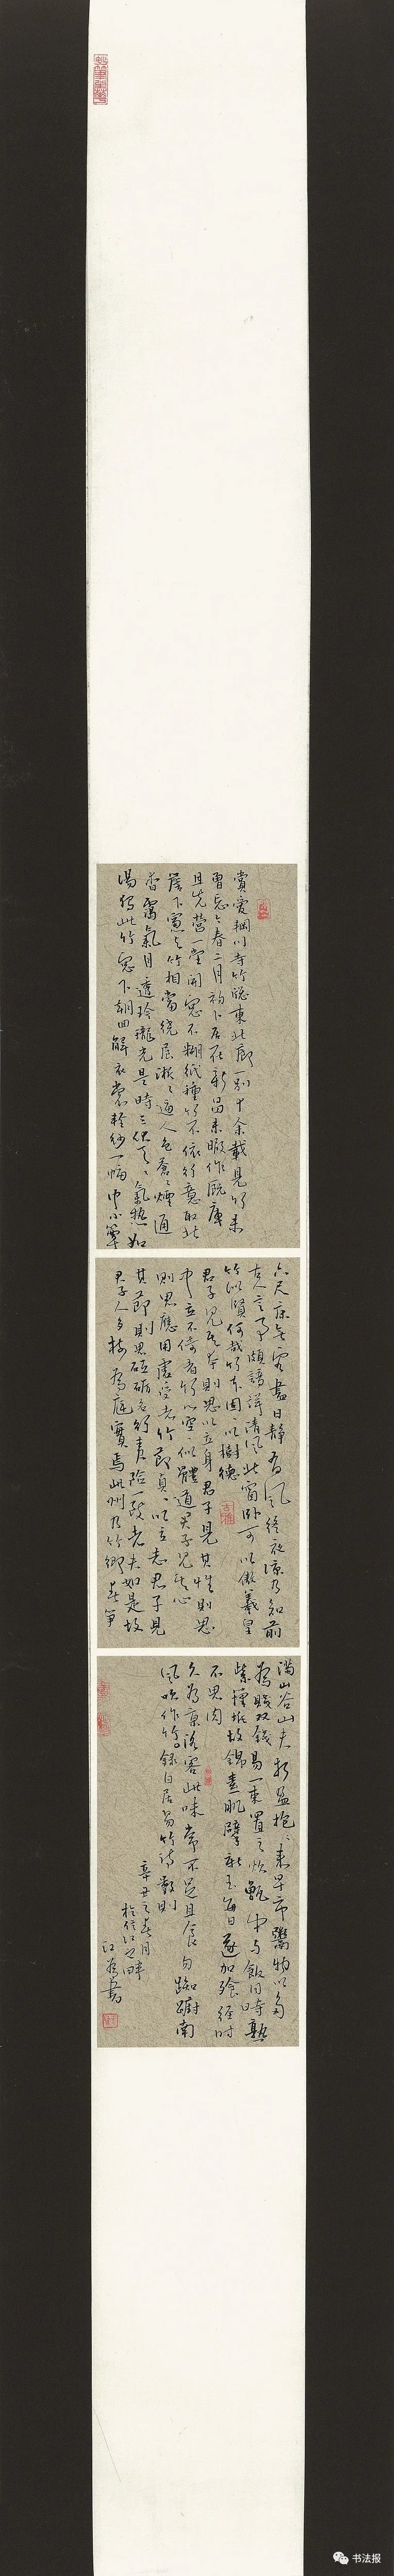 賞愛輞川寺竹聡東北廊一别十余載見竹未
曽忘今春二月初卜居在新昌未暇作厩庫
且先營一堂開窓不糊紙種竹不依行意取北
簷下窓与竹相當繞屋淅〻逼人色蒼〻煙通
杳靄氣月透玲瓏光是時三伏天〻氣熱如
湯獨此竹窓下朝回解衣裳輕紗一幅巾小簟
六尺床無客盡日静有風終夜凉乃知前
古人言事頗諳詳清風北窗卧可以傲羲皇
竹似賢何哉竹本固〻以樹德
君子見其本則思以立身君子見其性則思
中立不倚者竹心空似體道君子見其心
則思應用虚受者竹節貞〻以立志君子見
其節則思砥礪名行夷險一致者夫如是故
君子人多樹為庭實焉此州乃竹鄉春笋
滿山谷山夫折盈抱〻来早市鬻物以多
為賤双錢易一束置之炊甑中与飯同時熟
紫籜坼故錦素肌擘新玉每日遂加飱經時
不思肉
久為京洛客此味常不足且食勿踟躕南
風吹作竹。録白居易竹詩數則
辛丑之春月
於信江之畔
書
书法报